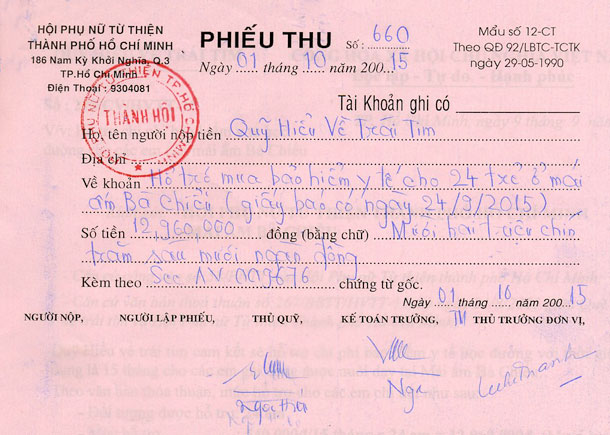 HỘI PHỤ NỮ TỪ THIỆN
THÀNH PHỐ HỒ CHÍ MINH
186 Nam Kỳ Khởi Nghĩa, Q.3
TP.Hồ Chí Minh
Điện Thoại : 9304081
PHIẾU THU
Số : 660
Ngày 01 tháng 10 năm 200 15
Mẩu số 12-CT
Theo QĐ 92/LBTC-TCTK
ngày 29-05-1990
THÀNH HỘI
Tài Khoản ghi có
Họ, tên người nộp tiền Quỹ Hiểu Về Trái Tim
Địa chỉ
Về khoản Hỗ trợ mua bảo hiểm y tế cho 24 trẻ ở mái
ấm Bà Chiểu (giấy báo có ngày 24/9/2015)
Số tiền 12,960,000 đồng (bằng chữ) Mười hai triệu chín
trăm sáu mươi ngàn đồng
Kèm theo Sec AV 0009676 chứng từ gốc.
Ngày 01 tháng 10 năm 200 15
NGƯỜI NỘP, NGƯỜI LẬP PHIẾU, THỦ QUỸ, KẾ TOÁN TRƯỞNG, TM THỦ TRƯỞNG ĐƠN VỊ,
Nga